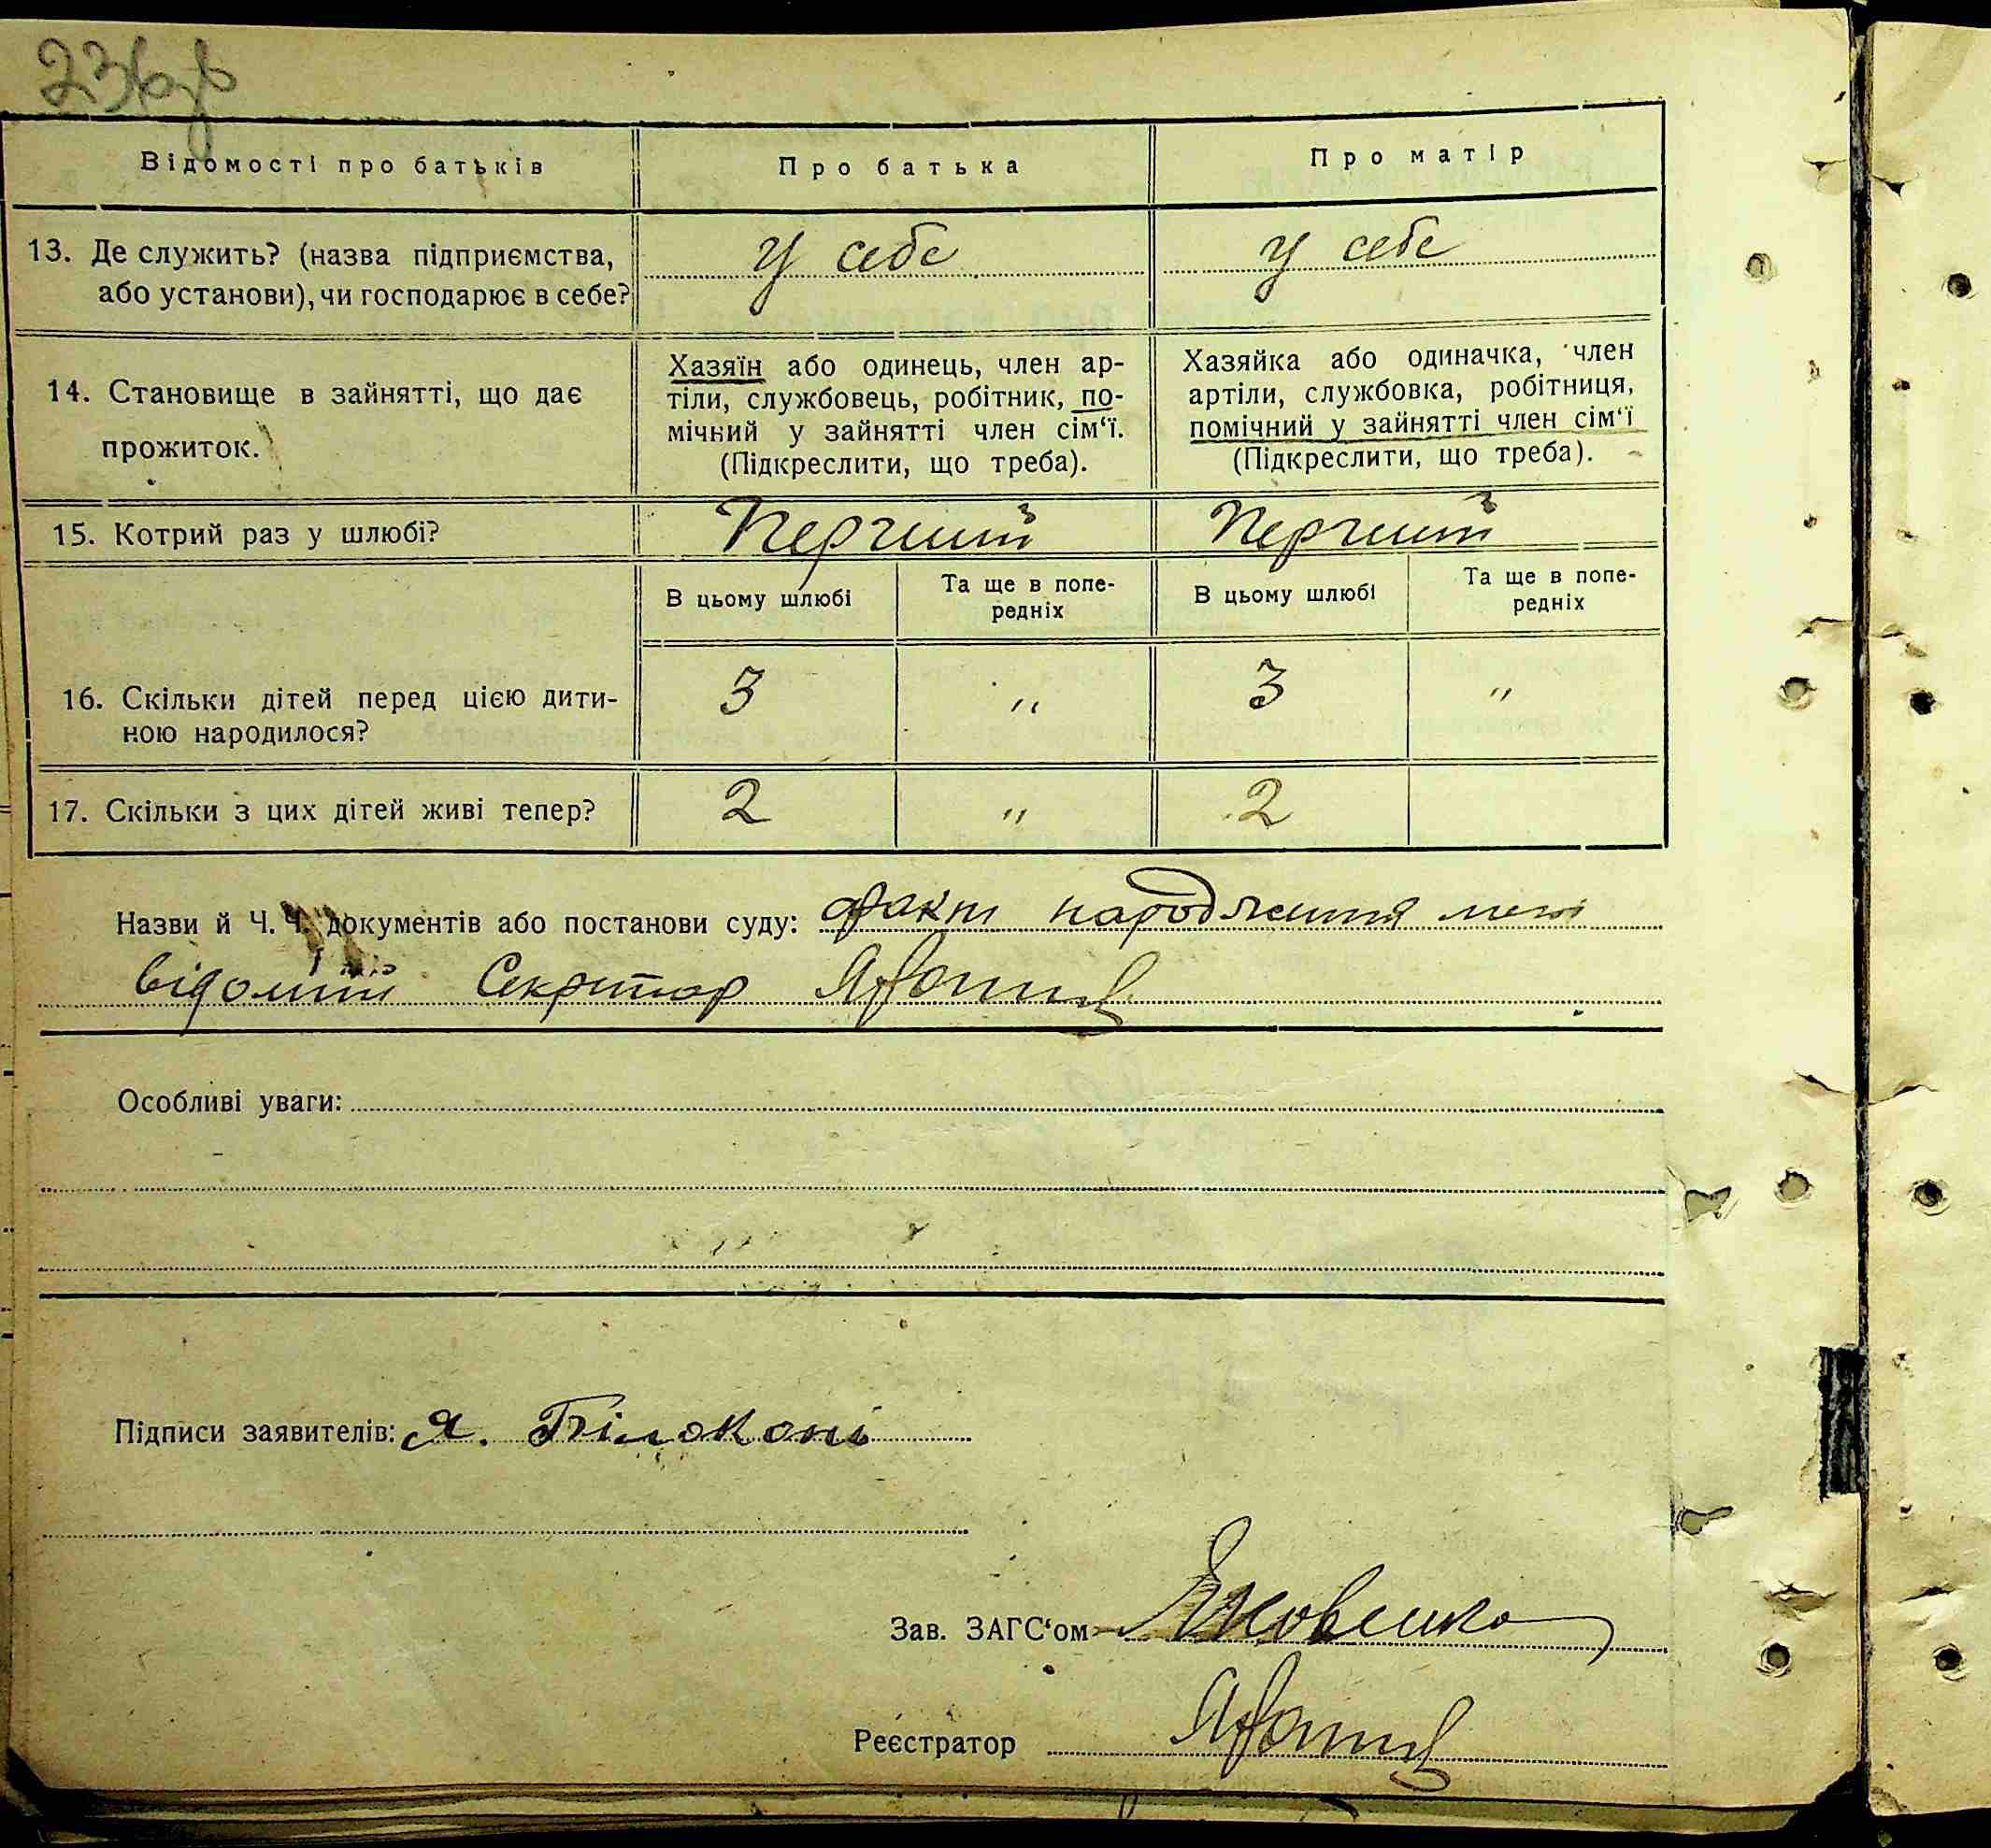 236зв
Відомості про батьків
Про батька
Про матір
13. Де служить? (назва підприємства,
або установи), чи господарює в себе?
у себе
у себе
14. Становище в зайнятті, що дає
прожиток.
Хазяїн або одинець, член ар-
тіли, службовець, робітник, по-
мічний у зайнятті член сім‘ї.
(Підкреслити, що треба).
Хазяйка або одиначка, член
артіли, службовка, робітниця,
помічний у зайнятті член сім‘ї
(Підкреслити, що треба).
15. Котрий раз у шлюбі?
Перший
Перший
В цьому шлюбі
Та ще в попе-
редніх
В цьому шлюбі
Та ще в попе-
редніх
16. Скільки дітей перед цією дити-
ною народилося?
3
"
3
"
17. Скільки з цих дітей живі тепер?
2
"
2
Назви й Ч.Ч. документів або постанови суду: факт народження мені
відомий Секретар
Особливі уваги:
Підписи заявителів: Я. Білоконь
Зав. ЗАГС‘ом Яковенко
Реєстратор